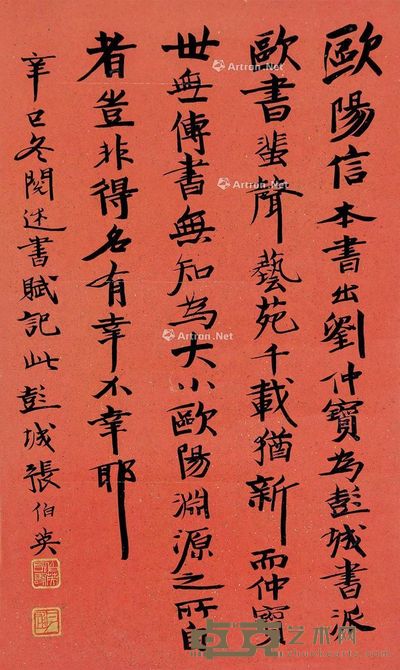 歐陽信本書出劉仲寶為彭城書派
歐書蜚聲藝苑千載猶新而仲寶
世無傳書無知為大小歐陽淵源之所自
者豈非得名有幸不幸耶
辛巳冬閱述書賦記此彭城張伯英
Artron.Net
Artron.Net
Artron.Net
卓克艺术网